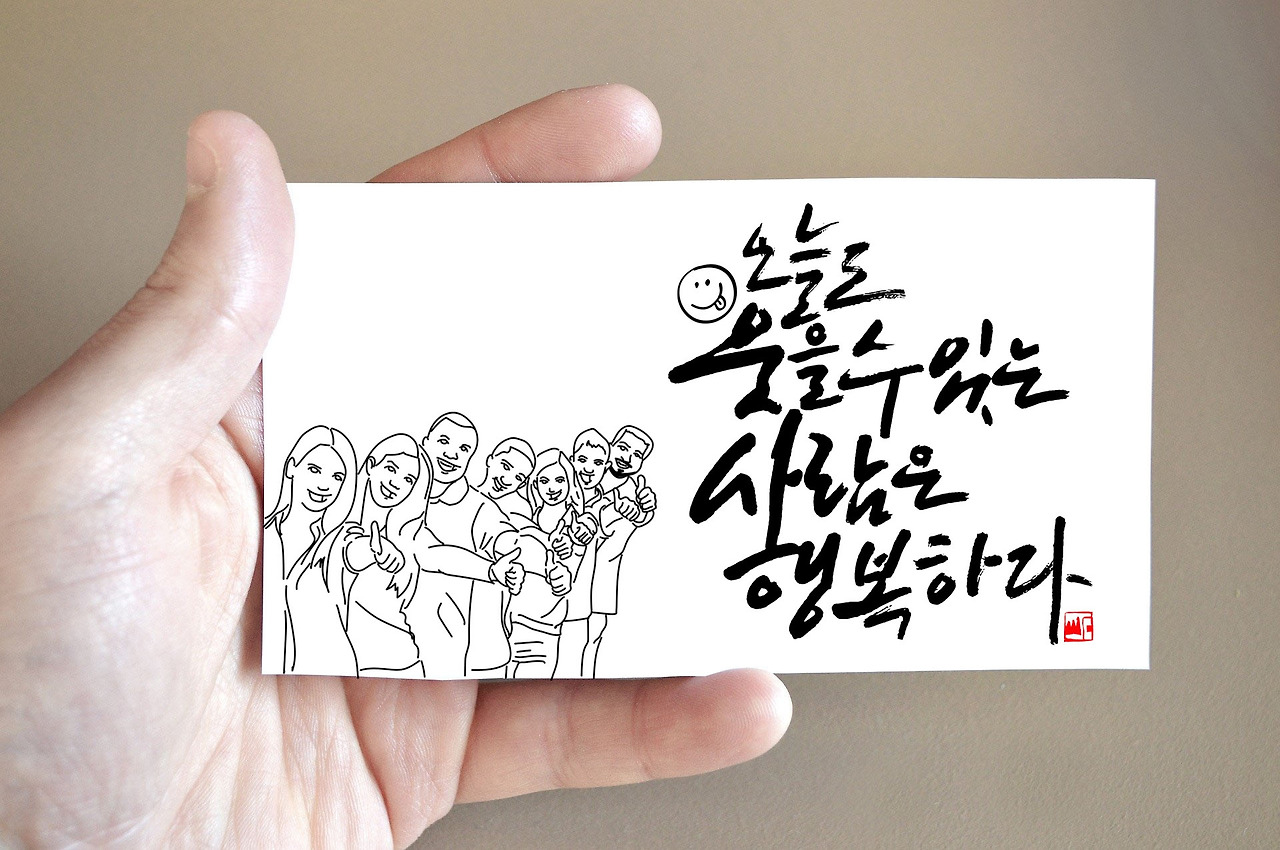 오늘도
웃을 수 있는
사람은
행복하다